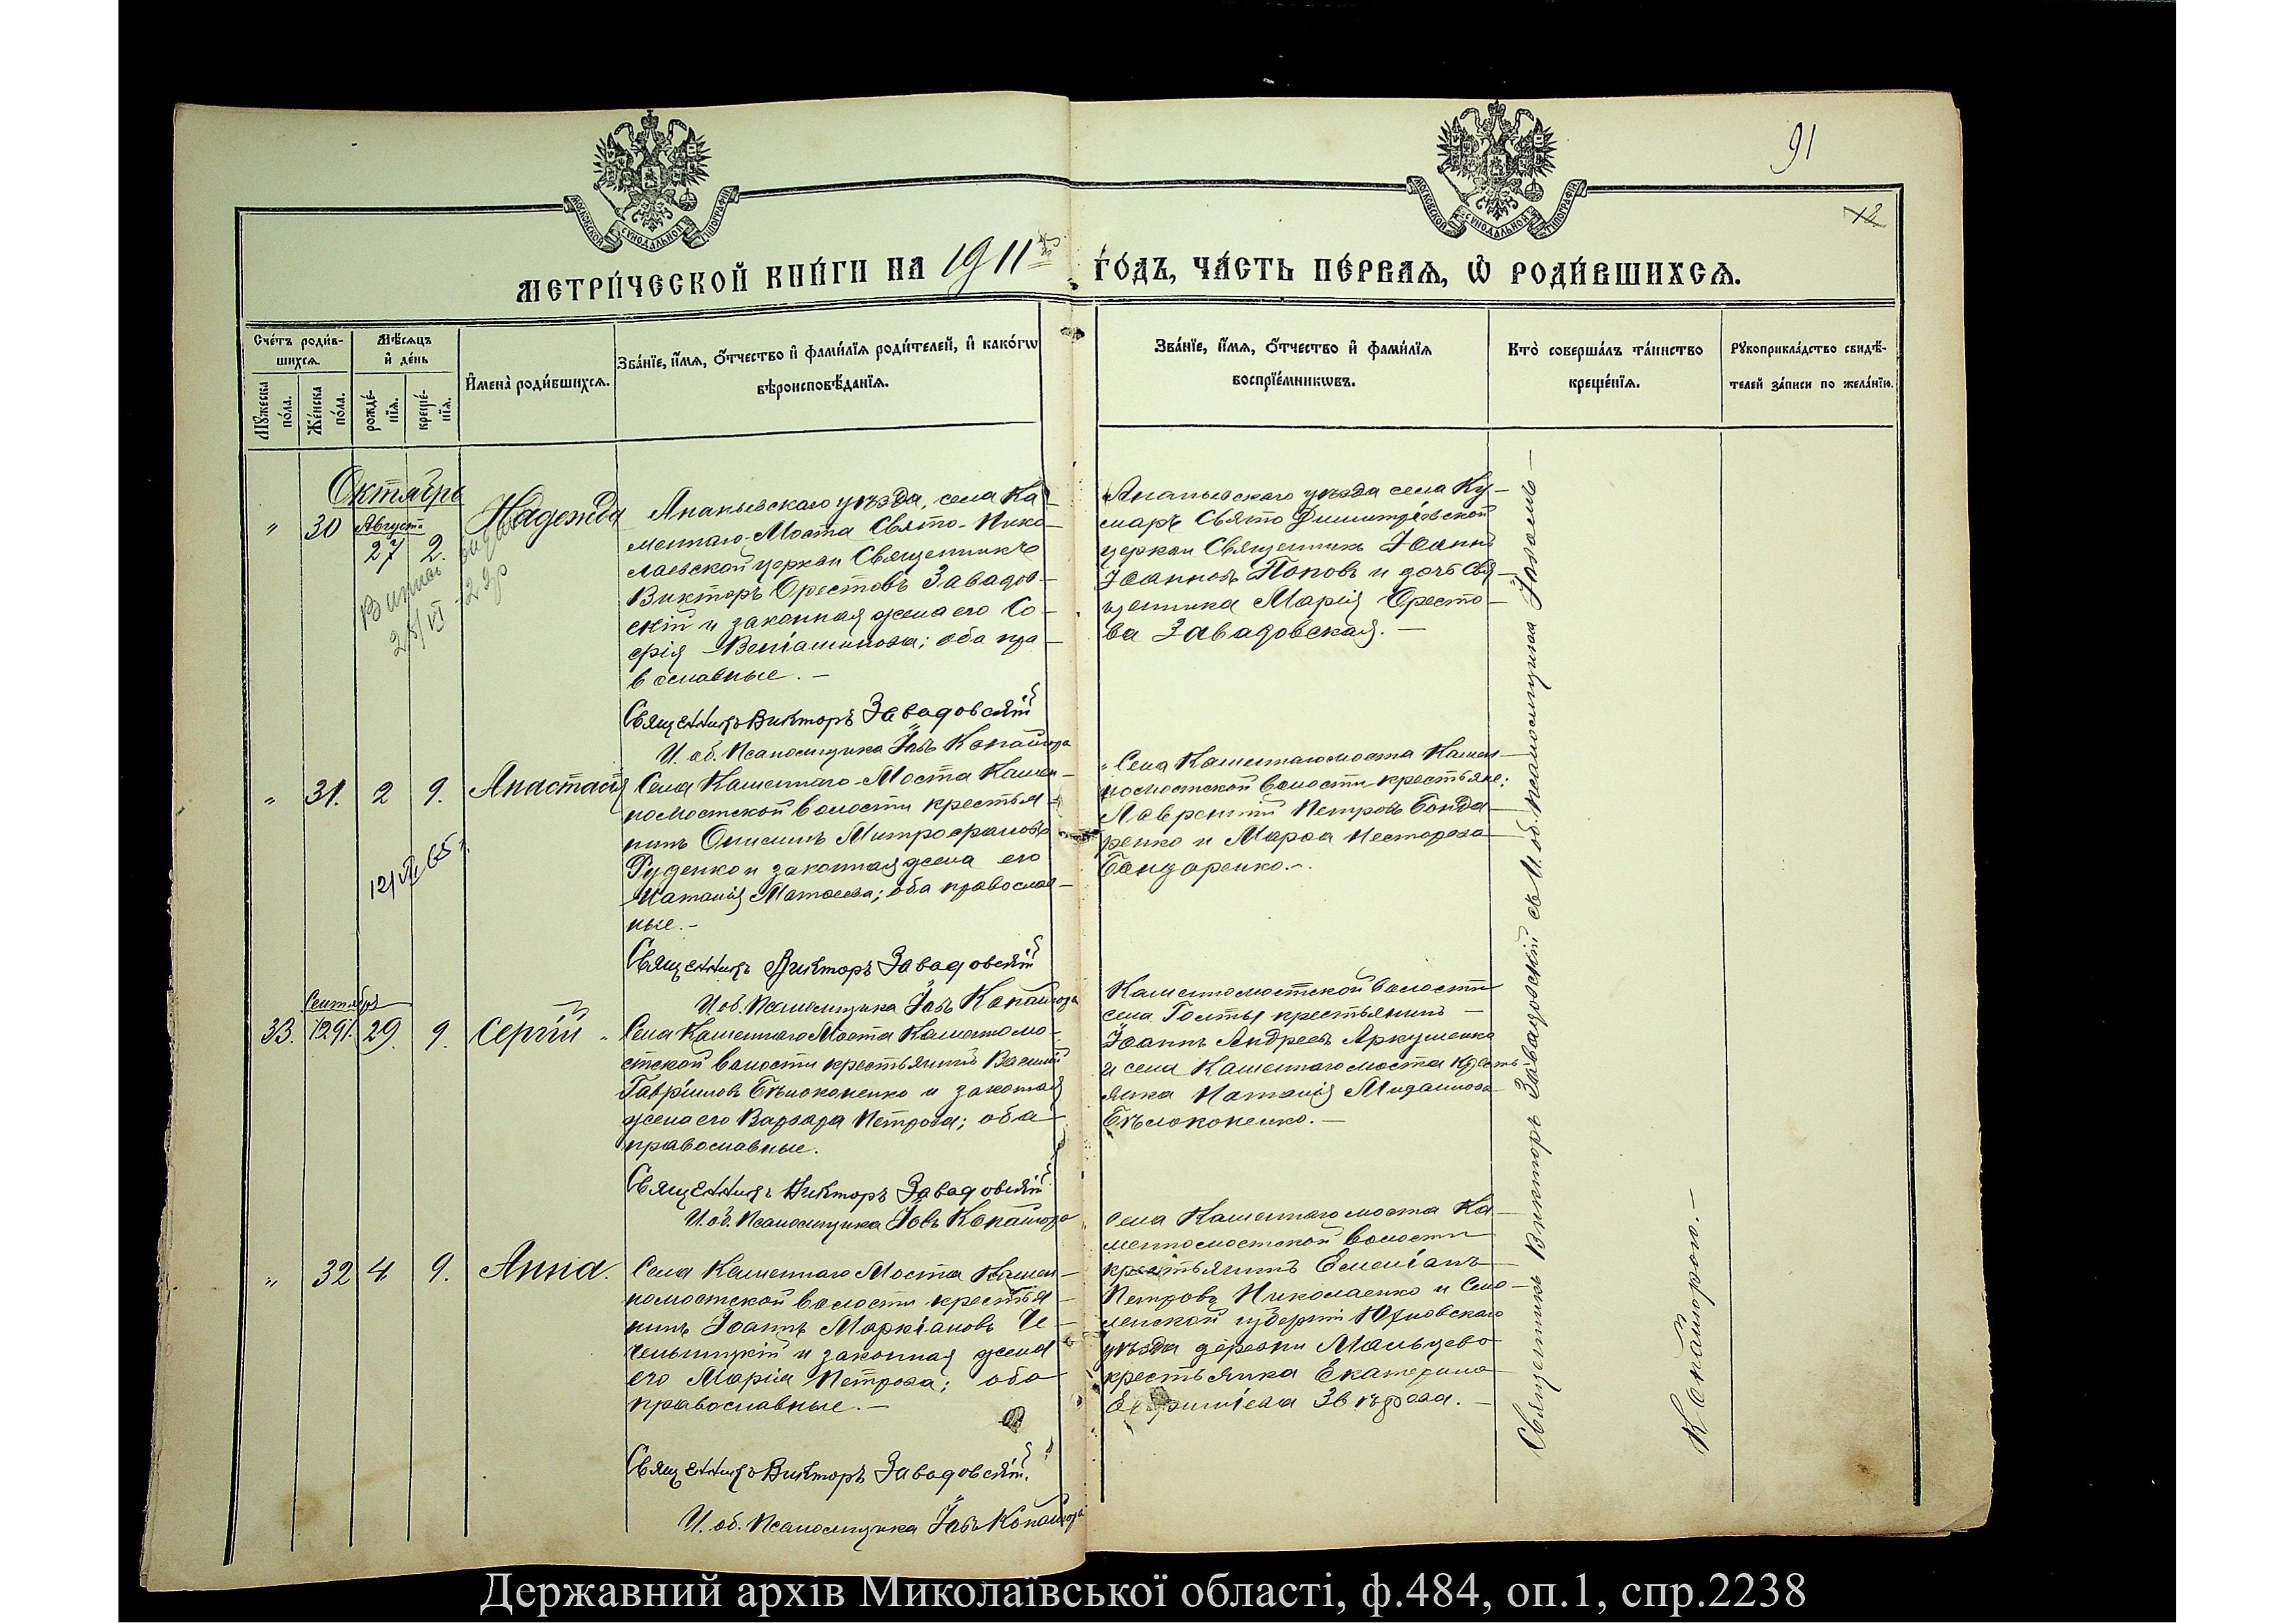 91
12
МОСКОВСКОЙ СѴНОДАЛЬНОЙ ТѴПОГРАФІИ
МОСКОВСКОЙ СѴНОДАЛЬНОЙ ТѴПОГРАФІИ
МЕТРИ́ЧЕСКОЙ КНИ́ГИ НА 1911й ГО́ДЪ, ЧА́СТЬ ПЕ́РВАЯ, Ѿ РОДИ́ВШИХСЯ.
Сче́тъ роди́в-
шихся.
Мꙋ́жеска по́ла.
Же́нска по́ла.
Мѣ́сяцъ
и҆ де́нь
рожде́-
нїя.
креще́-
нїя.
И҆мена̀ роди́вшихся.
Зва́нїе, и҆́мя, ѻ҆́тчество и҆ фами́лїя роди́телей, и҆ како́гѡ
вѣроисповѣ́данїя.
Зва́нїе, и҆́мя, ѻ҆́тчество и҆ фами́лїя
воспрїе́мникѡвъ.
Кто̀ соверша́лъ та́инство
креще́нїя.
Рꙋкоприкла́дство свидѣ́-
телей за́писи по жела́нїю.
Октябрь
" 30 Августа 27 2. Надежда
Ананьевскаго уѣзда, села Ка-
меннаго-Моста Свято-Нико-
лаевской церкви Священникъ
Викторъ Орестовъ Завадов-
скій и законная жена его Со-
фія Веніаминова; оба пра-
вославные. –
Священникъ Викторъ Завадовскій
И. об. Псаломщика Іовъ Копайгора
Ананьевскаго уѣзда села Ку-
маръ Свято Димитріовской
церкви Священникъ Іоаннъ
Іоанновъ Поповъ и дочь свя-
щенника Марія Оресто-
ва Завадовская. –
" 31. 2 9. Анастасія
12/VI 65 г.
Села Каменнаго-Моста Камен-
номостской волости крестья-
нинъ Онисимъ Митрофановъ
Руденко и законная жена его
Наталія Матѳеева; оба православ-
ные. –
Священникъ Викторъ Завадовскій
И об. Псаломщика Іовъ Копайгора
Села Каменнагомоста Камен-
номостской волости крестьяне:
Лаврентій Петровъ Бонда-
ренко и Марѳа Несторова
Бондаренко. –
Сентябрь
33. 29. 9. Сергій
Села Каменнаго Моста Каменномо-
стской волости крестьянинъ Василій
Гавріиловъ Бѣлоконенко и законная
жена его Варвара Петрова; оба
православные.
Священникъ Викторъ Завадовскій
И. об. Псаломщика Іовъ Копайгора
Каменномостской волости
села Голты крестьянинъ –
Іоаннъ Андреевъ Аркушенко
и села Каменнаго моста кресть-
янка Наталія
Бѣлоконенко. –
" 32 4 9. Анна.
Села Каменнаго Моста Камен-
номостской волости крестья-
нинъ Іоаннъ Маркіановъ Че-
чельницкій и законная жена
его Марія Петрова; оба
православные. –
Священникъ Викторъ Завадовскій.
И. об. Псаломщика Іовъ Копайгора
Села Каменнаго моста Ка-
менномостской волости
крестьянинъ Емеліанъ
Петровъ Николаенко и Смо-
ленской губерніи Юхновскаго
уѣзда деревни Мальцево
крестьянка Екатерина
Звѣрева. –
Священникъ Викторъ Завадовскій съ И. об. псаломщика Іовомъ –
Копайгорою. –
Державний архів Миколаївської області, ф.484, оп.1, спр.2238